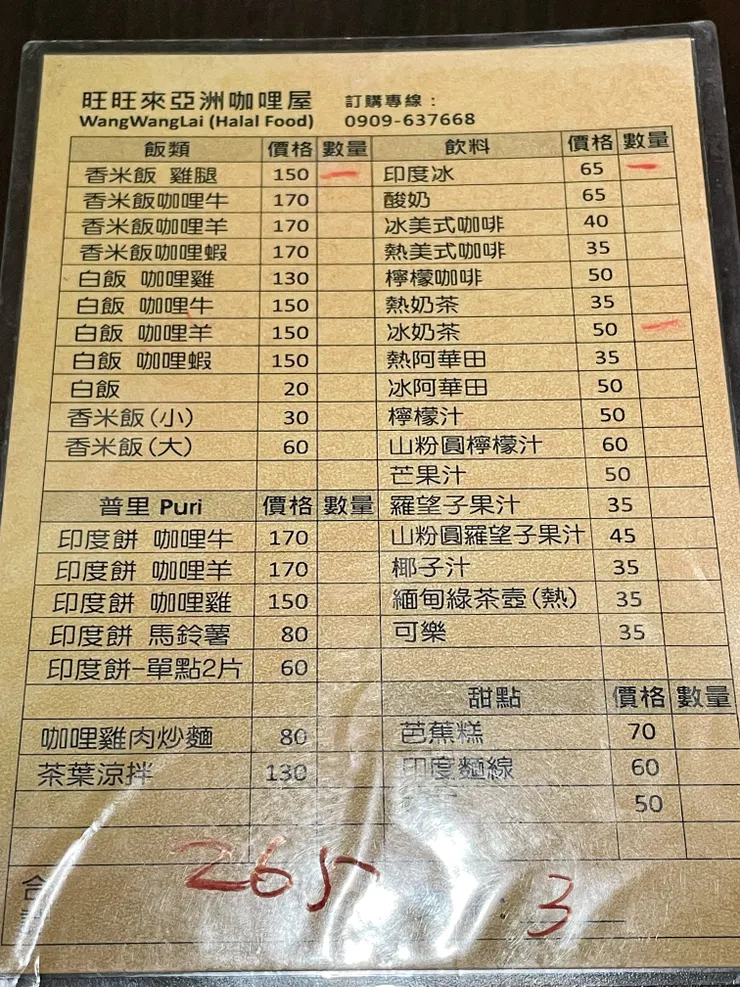 旺旺來亞洲咖哩屋 訂購專線：
WangWangLai (Halal Food) 0909-637668
飯類 價格 數量 飲料 價格 數量
香米飯 雞腿 150 一 印度冰 65 一
香米飯咖哩牛 170 酸奶 65
香米飯咖哩羊 170 冰美式咖啡 40
香米飯咖哩蝦 170 熱美式咖啡 35
白飯 咖哩雞 130 檸檬咖啡 50
白飯 咖哩牛 150 熱奶茶 35
白飯 咖哩羊 150 冰奶茶 50 一
白飯 咖哩蝦 150 熱阿華田 35
白飯 20 冰阿華田 50
香米飯(小) 30 檸檬汁 50
香米飯(大) 60 山粉圓檸檬汁 60
芒果汁 50
普里 Puri 價格 數量 羅望子果汁 35
印度餅 咖哩牛 170 山粉圓羅望子果汁 45
印度餅 咖哩羊 170 椰子汁 35
印度餅 咖哩雞 150 緬甸綠茶壺(熱) 35
印度餅 馬鈴薯 80 可樂 35
印度餅-單點2片 60
甜點 價格 數量
咖哩雞肉炒麵 80 芭蕉糕 70
茶葉涼拌 130 印度麵線 60
50
合 265 3